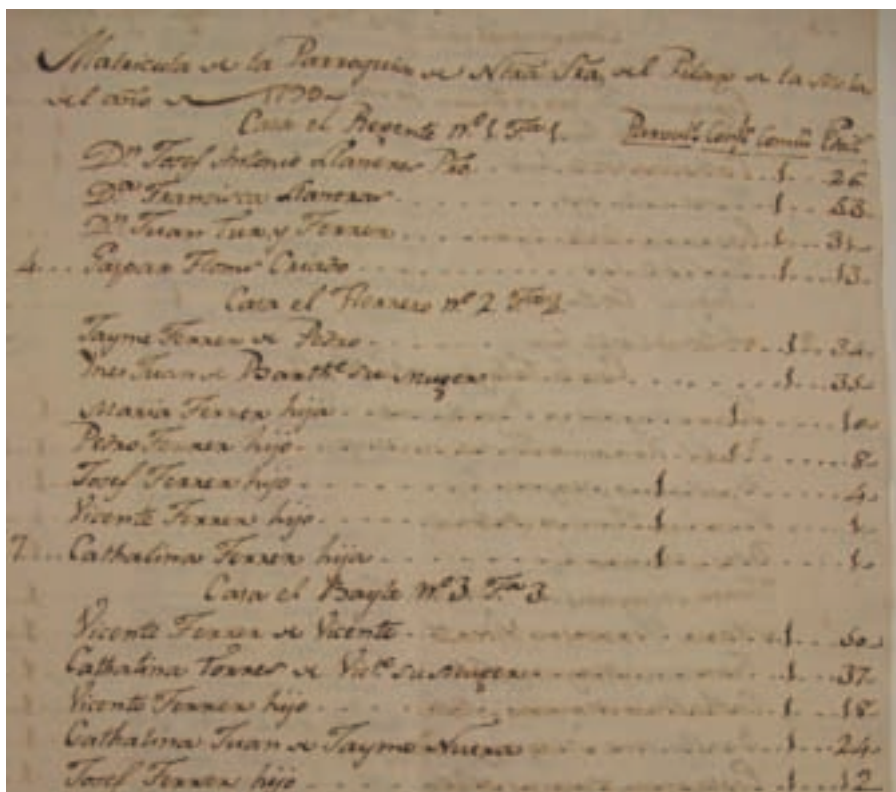 Matricula de la Parroquia de Ntra Sra. del Pilar de la Mola
del año de 1798
Casa el Regente nº 1. Fªˢ 1. Parvuls Confs Comun Edad
Dn Josef Antonio Llaneres Pro. 1 26
Dª Francisca Llaneras 1 53
Dn Juan Tur y Ferrer 1 31
4 Gaspar Flomer Criado 1 13
Casa el Herrero nº 2 Fª 2
Jayme Ferrer de Pedro 1 34
Ines Juan de Barthe su muger 1 35
Maria Ferrer hija 1 10
Pedro Ferrer hijo 1 8
Josef Ferrer hijo 1 4
Vicente Ferrer hijo 1 1
7 Cathalina Ferrer hija 1 1
Casa el Bayle nº 3. Fª 3
Vicente Ferrer de Vicente 1 50
Cathalina Torres de Victe su muger 1 37
Vicente Ferrer hijo 1 18
Cathalina Juan de Jayme Nuera 1 24
Josef Ferrer hijo 1 12